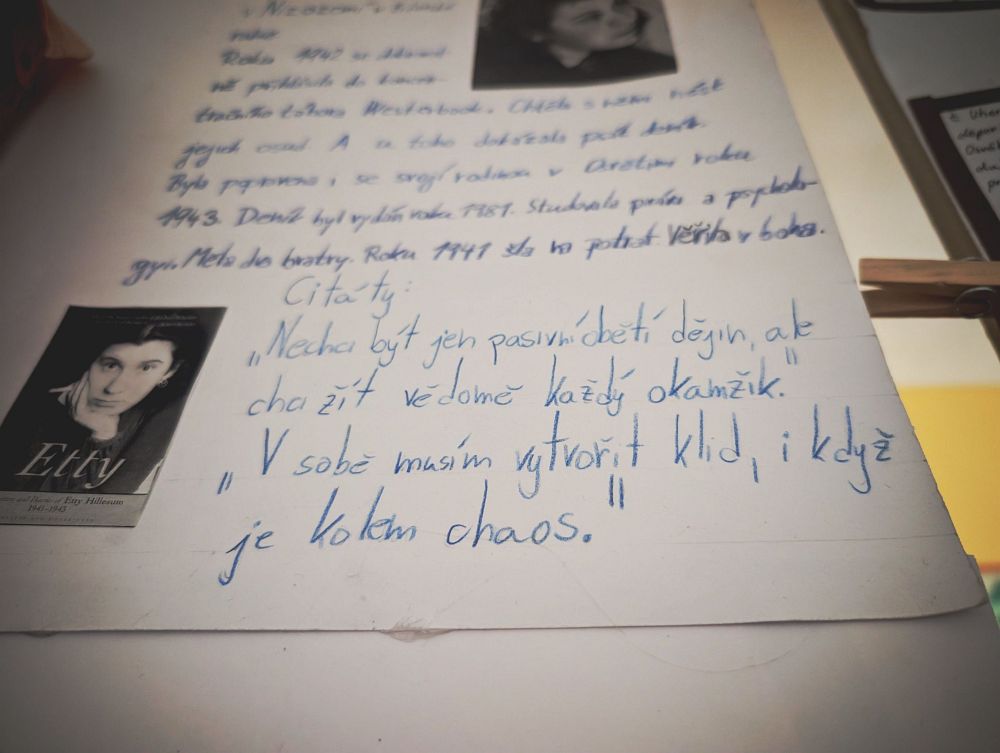 v Nizozemí v
Roku 1942 se
ně přihlásila do koncen-
tračního tábora Westerbook. Chtěla s nimi nést
jejich osud. A za toho dokázala psát
Byla popravena i se svojí rodinou v Osvětimi roku
1943. Deník byl vydán roku 1981. Studovala práva a psycholo-
gyi. Měla dva bratry. Roku 1941 šla na potrat. Věřila v boha.
Citáty:
„Nechci být jen pasivní obětí dějin, ale
chci žít vědomě každý okamžik."
„V sobě musím vytvořit klid, i když
je kolem chaos."
Etty
and Diaries of Etty Hillesum
1941-1943